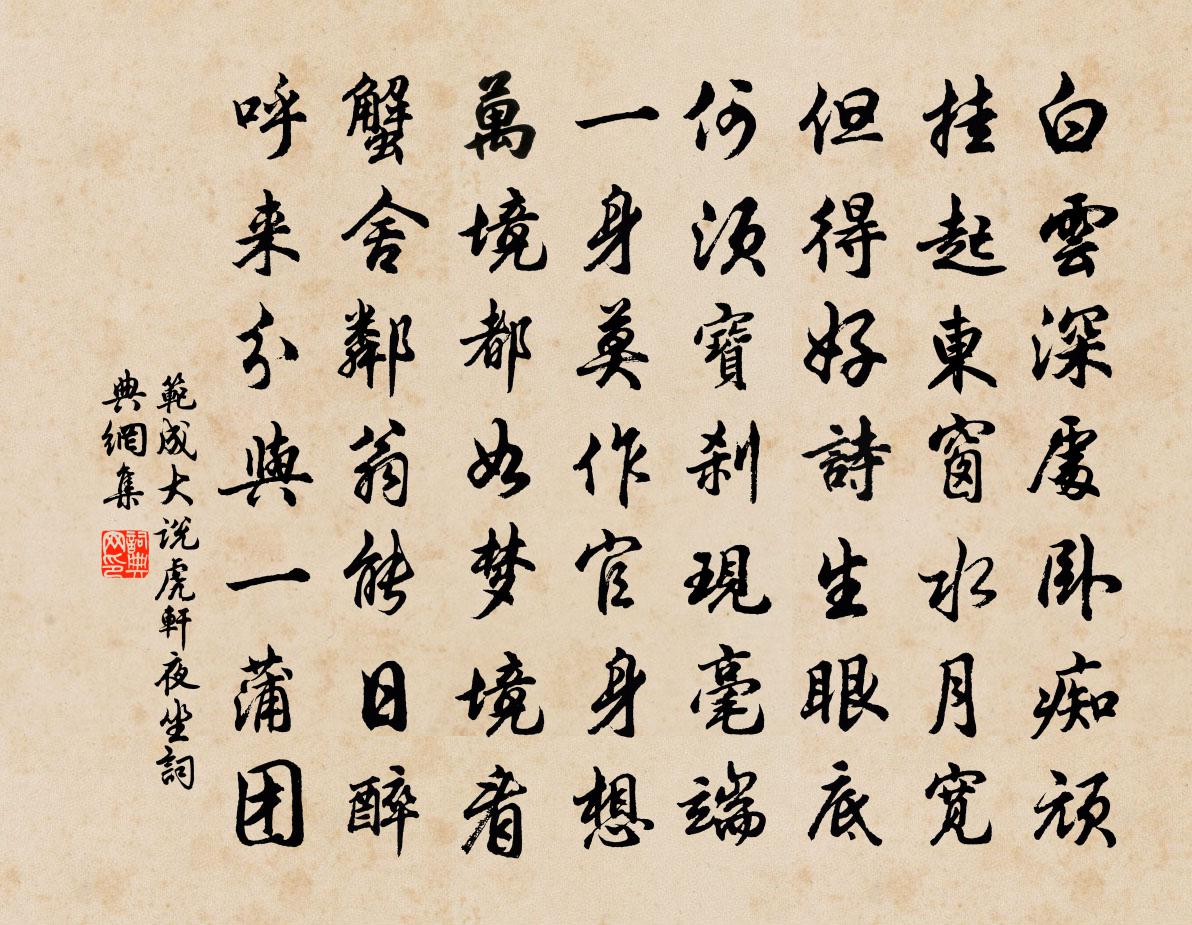 白雲深處卧痴頑
挂起東窗水月寬
但得好詩生眼底
何須寶刹現毫端
一身莫作官身想
萬境都如梦境看
蟹舍鄰翁能日醉
呼来分與一蒲团
範成大说虎軒夜坐詞
典網集
詞典
网印